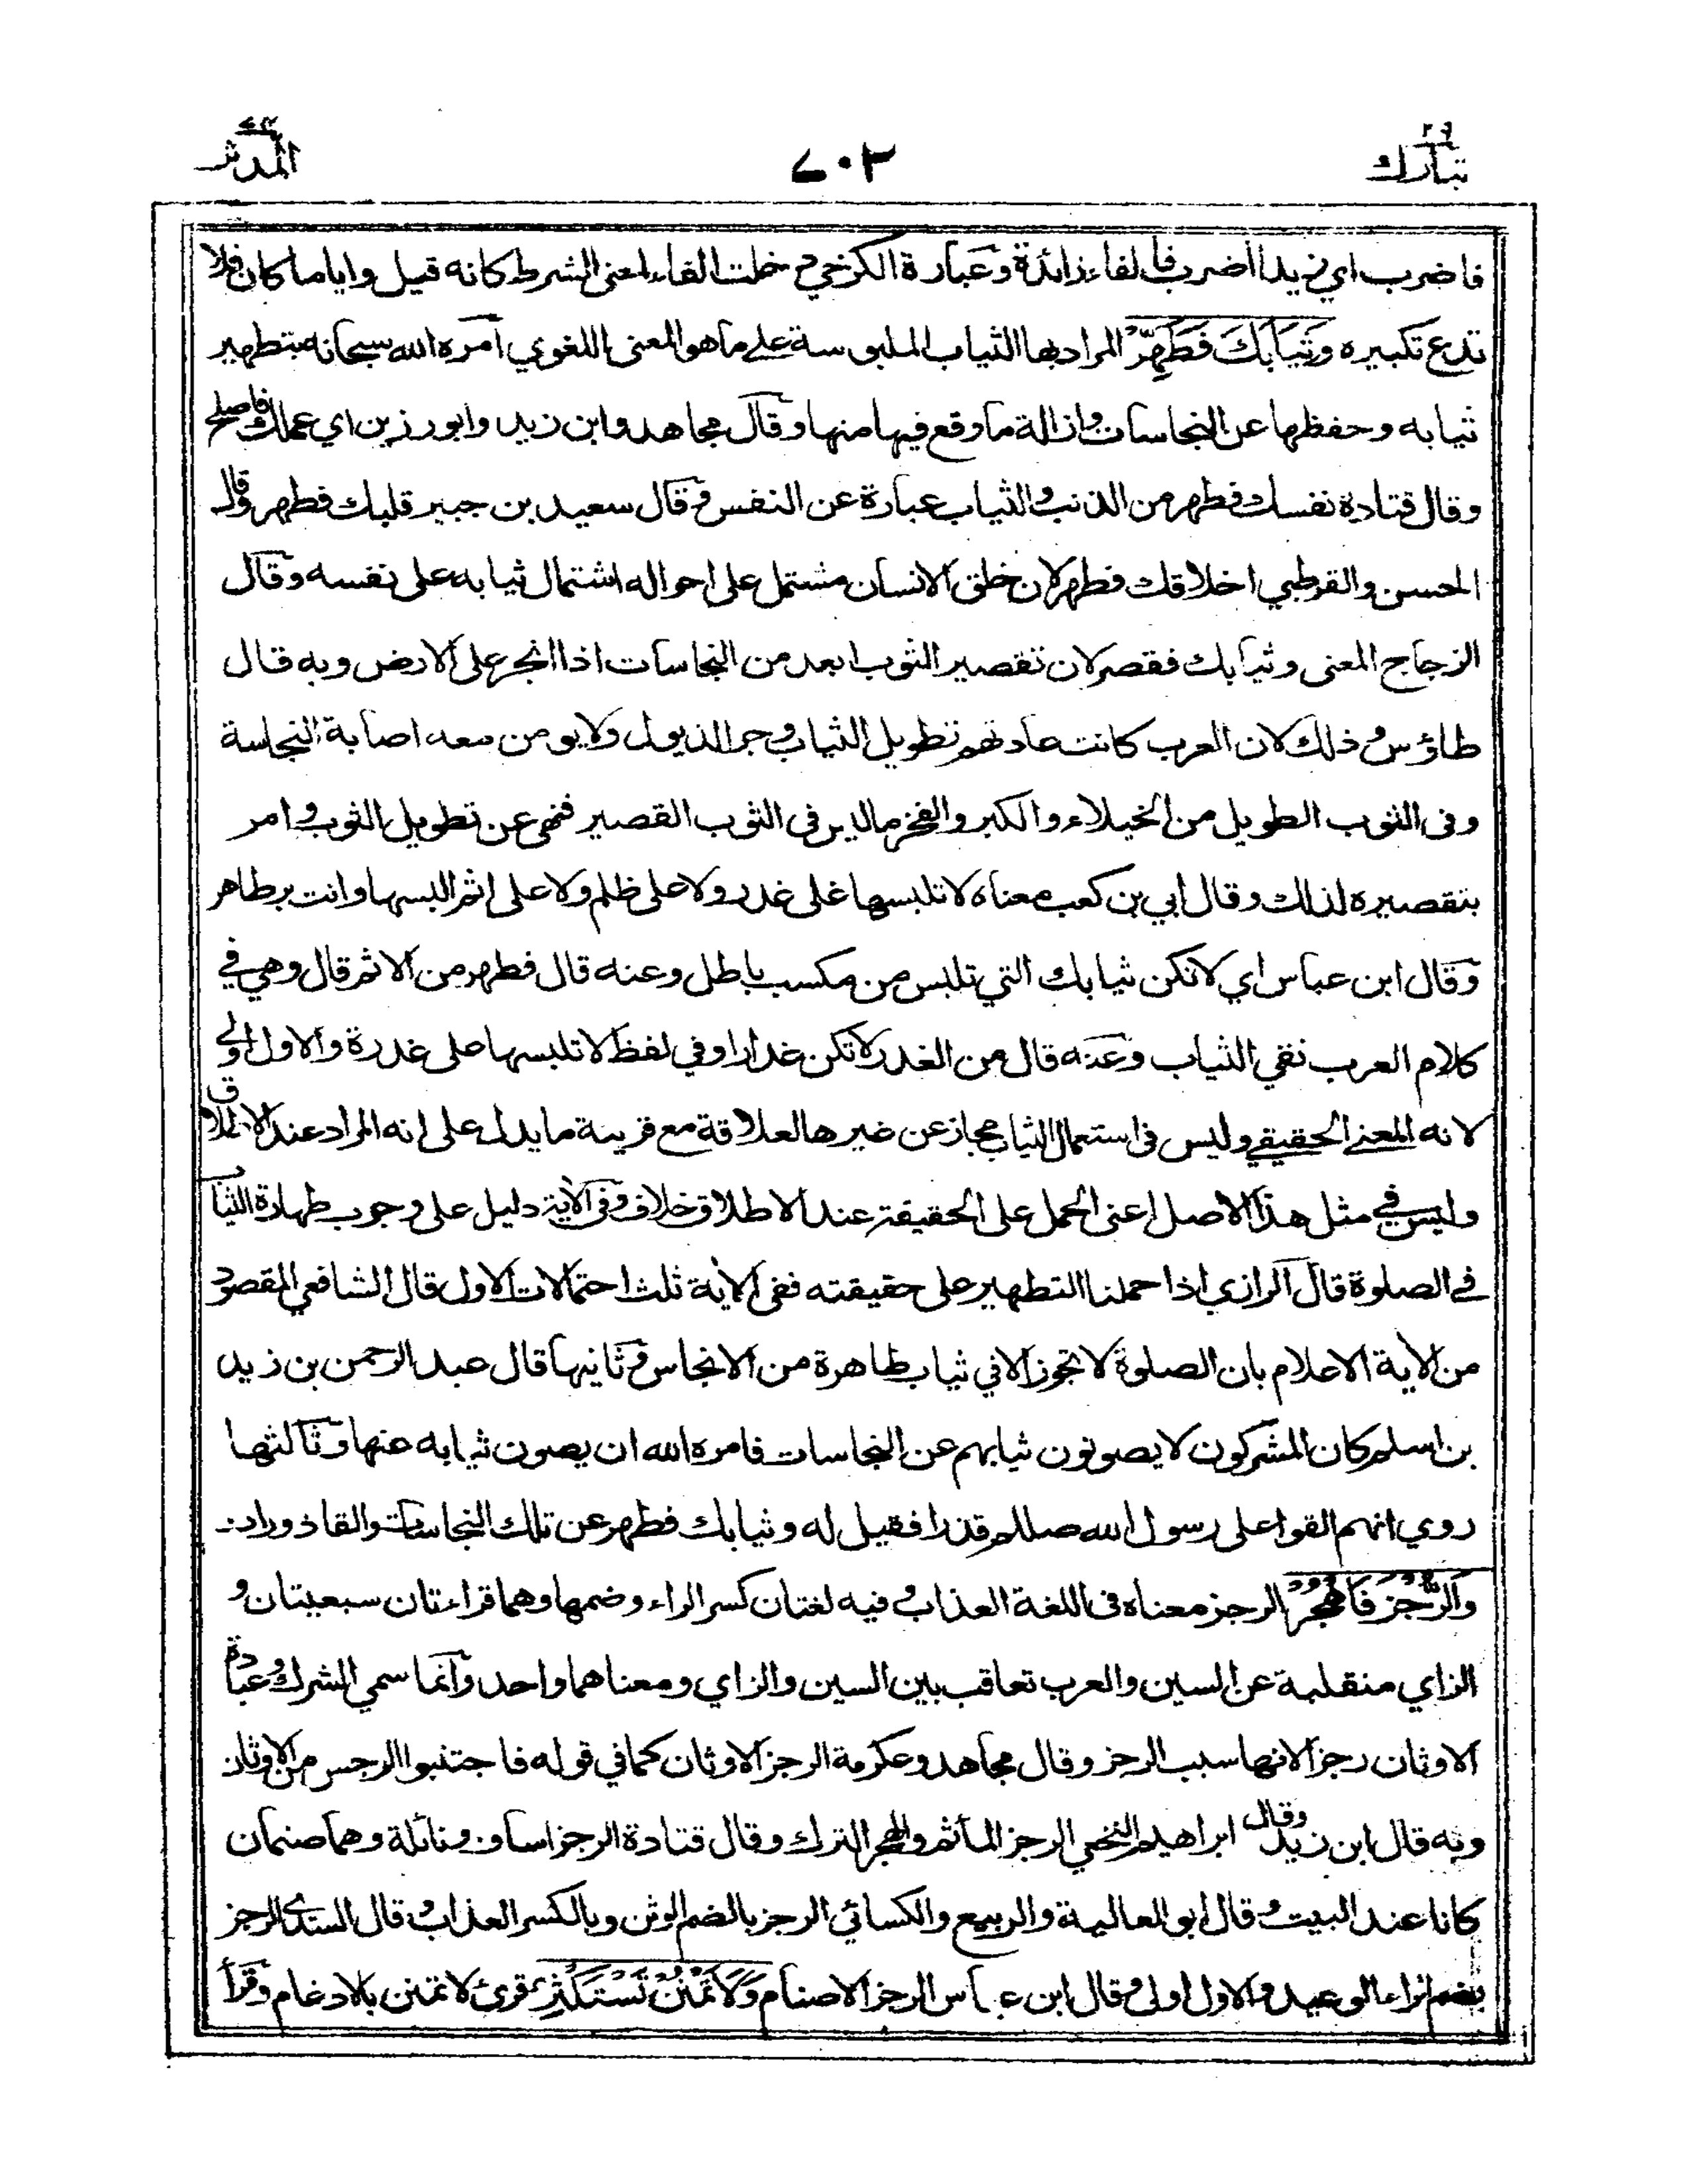 تبارك ٢٩
٧٠٣
المدثر ٧٤
فاضرب اي زيدا اضرب فالفاء زائدة وعبارة الكرخي دخلت الفاء لمعنى الشرط كانه قيل واياما كان فلا
تدع تكبيره وَثِيَابَكَ فَطَهِّرْ المراد بها الثياب الملبوسة على ما هو المعنى اللغوي امره الله سبحانه بتطهير
ثيابه وحفظها عن النجاسات وازالة ما وقع فيها منها وقال مجاهد وابن زيد وابو رزين اي عملك فاصلح
وقال قتادة نفسك فطهر من الذنب والثياب عبارة عن النفس وقال سعيد بن جبير قلبك فطهر وقال
الحسن والقرطبي اخلاقك فطهر لان خلق الانسان مشتمل على احواله اشتمال ثيابه على نفسه وقال
الزجاج المعنى وثيابك فقصر لان تقصير الثوب ابعد من النجاسات اذا انجر على الارض وبه قال
طاؤس وذلك لان العرب كانت عادتهم تطويل الثياب وجر الذيول ولا يومن معه اصابة النجاسة
وفي الثوب الطويل من الخيلاء والكبر والفخر ما ليس في الثوب القصير فنهى عن تطويل الثوب وامر
بتقصيره لذلك وقال ابي بن كعب معناه لا تلبسها على غدر ولا على ظلم ولا على اثم البسها وانت بر طاهر
وقال ابن عباس اي لا تكن ثيابك التي تلبس من مكسب باطل وعنه قال فطهر من الاثم قال وهي في
كلام العرب نقي الثياب وعنه قال من الغدر لا تكن غدارا وفي لفظ لا تلبسها على غدرة والاول اولى
لانه المعنى الحقيقي وليس في استعمال الثياب مجاز عن غيرها لعلاقة مع قرينة ما يدل على انه المراد عند الاطلاق
وليس في مثل هذا الاصل اعني الحمل على الحقيقة عند الاطلاق خلاف وفي الآية دليل على وجوب طهارة الثياب
في الصلوة قال الرازي اذا حملنا التطهير على حقيقته ففي الآية ثلث احتمالات الاول قال الشافعي المقصود
من الآية الاعلام بان الصلوة لا تجوز الا في ثياب طاهرة من الانجاس وثانيها قال عبد الرحمن بن زيد
بن اسلم كان المشركون لا يصونون ثيابهم عن النجاسات فامره الله ان يصون ثيابه عنها وثالثها
روي انهم القوا على رسول الله صللم قذرا فقيل له وثيابك فطهر عن تلك النجاسات والقاذورات
وَالرُّجْزَ فَاهْجُرْ الرجز معناه في اللغة العذاب وفيه لغتان كسر الراء وضمها وهما قراءتان سبعيتان و
الزاي منقلبة عن السين والعرب تعاقب بين السين والزاي ومعناهما واحد وانما سمي الشرك وعبادة
الاوثان رجزا لانها سبب الرجز وقال مجاهد وعكرمة الرجز الاوثان كما في قوله فاجتنبوا الرجس من الاوثان
وبه قال ابن زيد وقال ابراهيم النخعي الرجز المأثم والهجر الترك وقال قتادة الرجز اساف ونائلة وهما صنمان
كانا عند البيت وقال ابو العالية والربيع والكسائي الرجز بالضم الوثن وبالكسر العذاب وقال السدي الرجز
بضم الراء الوعيد والاول اولى وقال ابن عباس الرجز الاصنام وَلَا تَمْنُنْ تَسْتَكْثِرُ قرئ لا تمنن بلا ادغام وقرأ